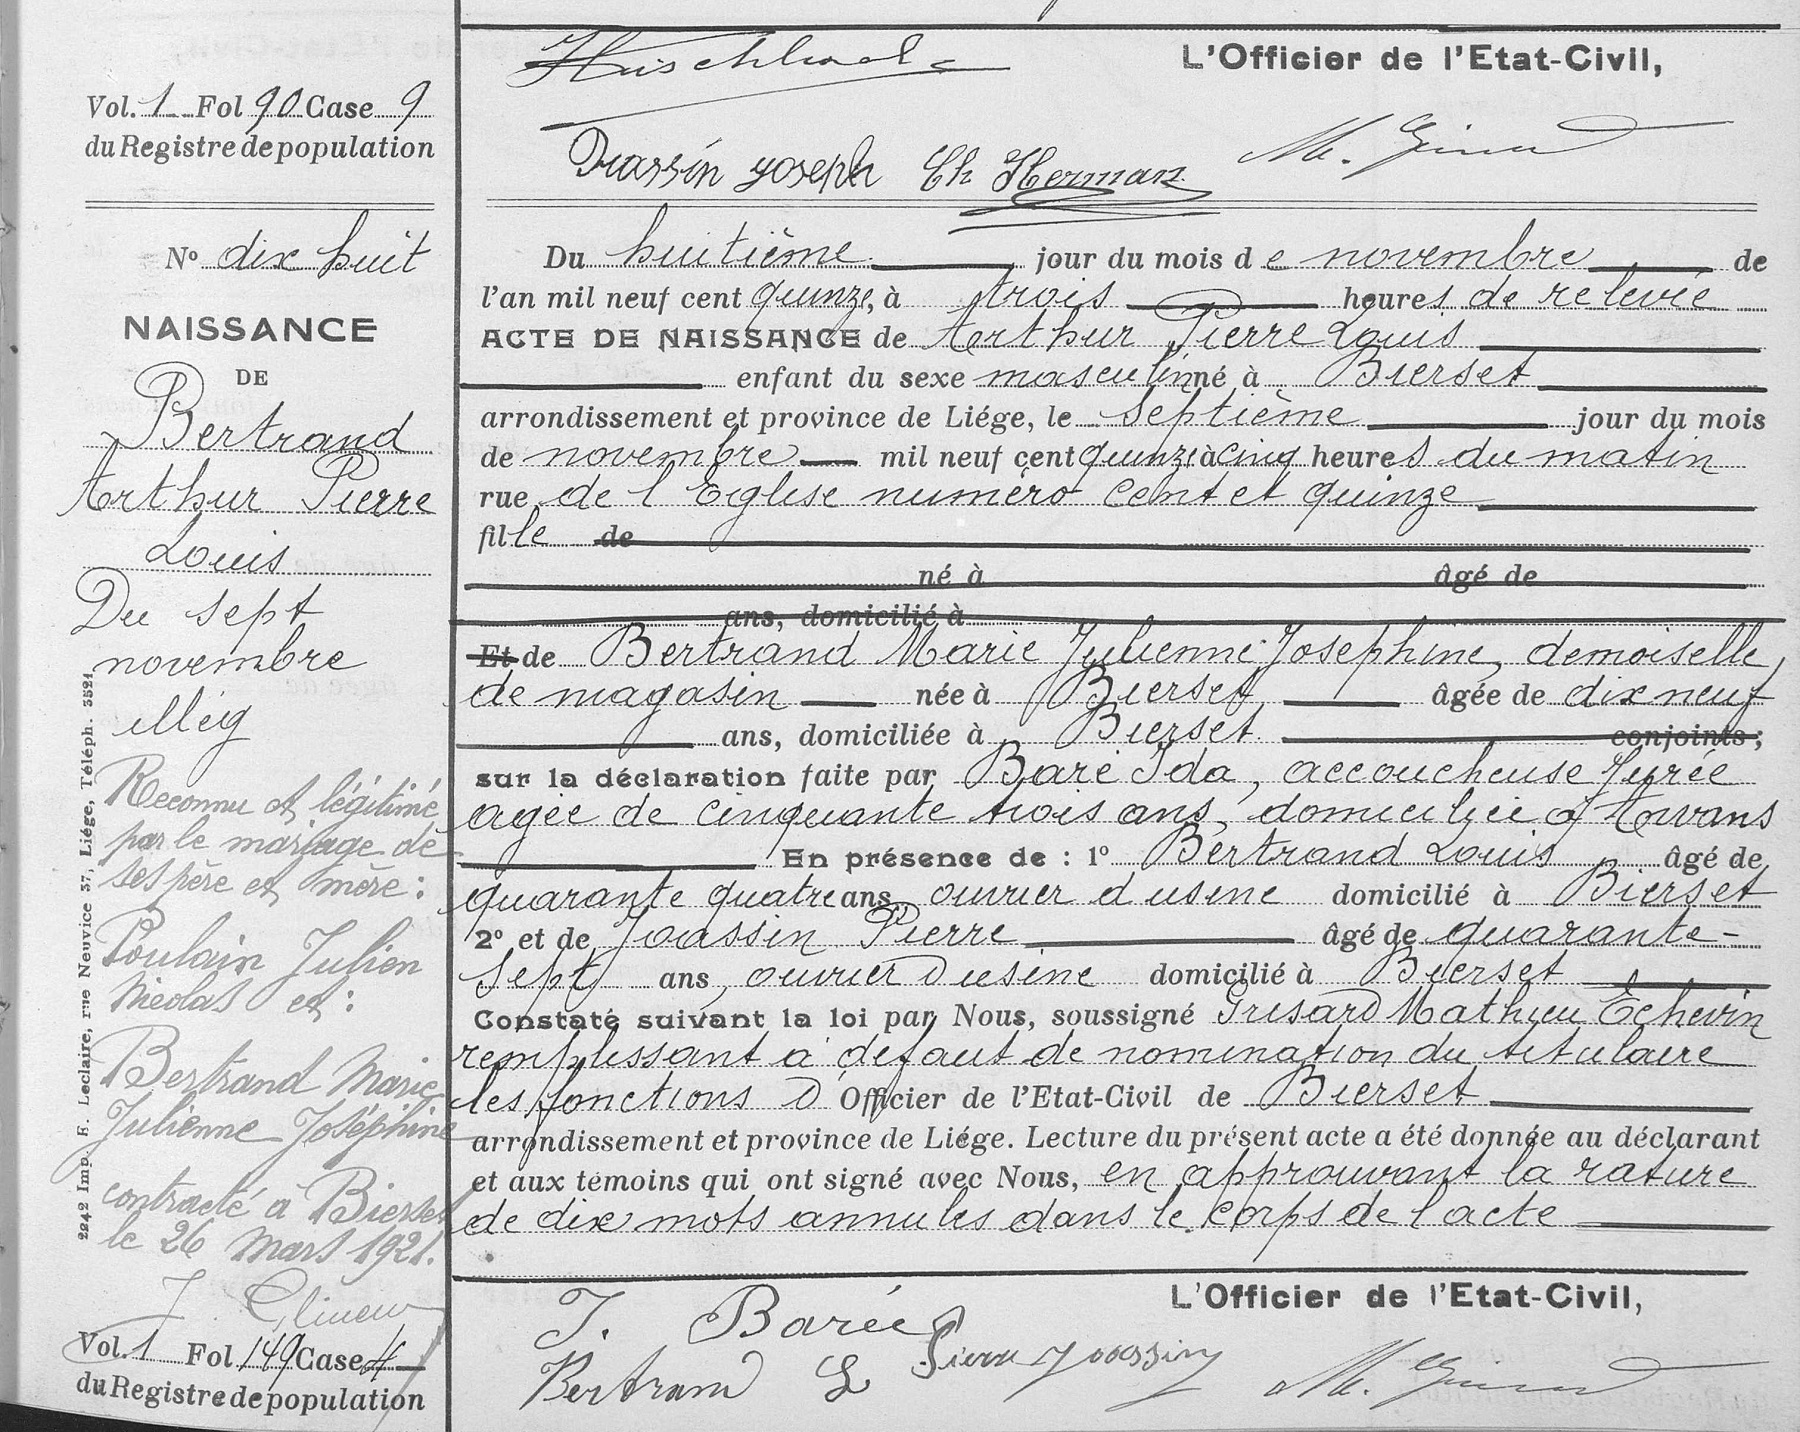 L'Officier de l'Etat-Civil,
Vol. 1 Fol 90 Case 9
du Registre de population
Joseph Ch Herman
M.
N° dix huit
NAISSANCE
DE
Bertrand
Arthur Pierre
Louis
Du sept
novembre
illég
Reconnu et légitimé
par le mariage de
ses père et mère :
Poulain Julien
Nicolas et :
Bertrand Marie
Julienne Joséphine
contracté à Bierset
le 26 Mars 1921.
J.
Vol. 1 Fol 149 Case 4
du Registre de population
2242 Imp. E. Leclaire, rue Neuvice 37, Liége, Téléph. 5521
Du huitième jour du mois de novembre de
l'an mil neuf cent quinze, à trois heures de relevée
ACTE DE NAISSANCE de Arthur Pierre Louis
enfant du sexe masculin né à Bierset
arrondissement et province de Liége, le septième jour du mois
de novembre mil neuf cent quinze à cinq heures du matin
rue de l'Eglise numéro cent et quinze
fil le de
né à âgé de
ans, domicilié à
Et de Bertrand Marie Julienne Josephine, demoiselle
de magasin née à Bierset âgée de dix neuf
ans, domiciliée à Bierset conjoints ;
sur la déclaration faite par Baré Ida, accoucheuse Jurée
agée de cinquante trois ans, domiciliée à Awans
En présence de : 1° Bertrand Louis âgé de
quarante quatre ans, ouvrier d usine domicilié à Bierset
2° et de Joassin Pierre âgé de quarante-
sept ans, ouvrier d usine domicilié à Bierset
Constaté suivant la loi par Nous, soussigné Grisard Mathieu Echevin
remplissant à défaut de nomination du titulaire
les fonctions d'Officier de l'Etat-Civil de Bierset
arrondissement et province de Liége. Lecture du présent acte a été donnée au déclarant
et aux témoins qui ont signé avec Nous, en approuvant la rature
de dix mots annulés dans le corps de l'acte
L'Officier de l'Etat-Civil,
I. Barée
Bertrand L Pierre Joassin
M.